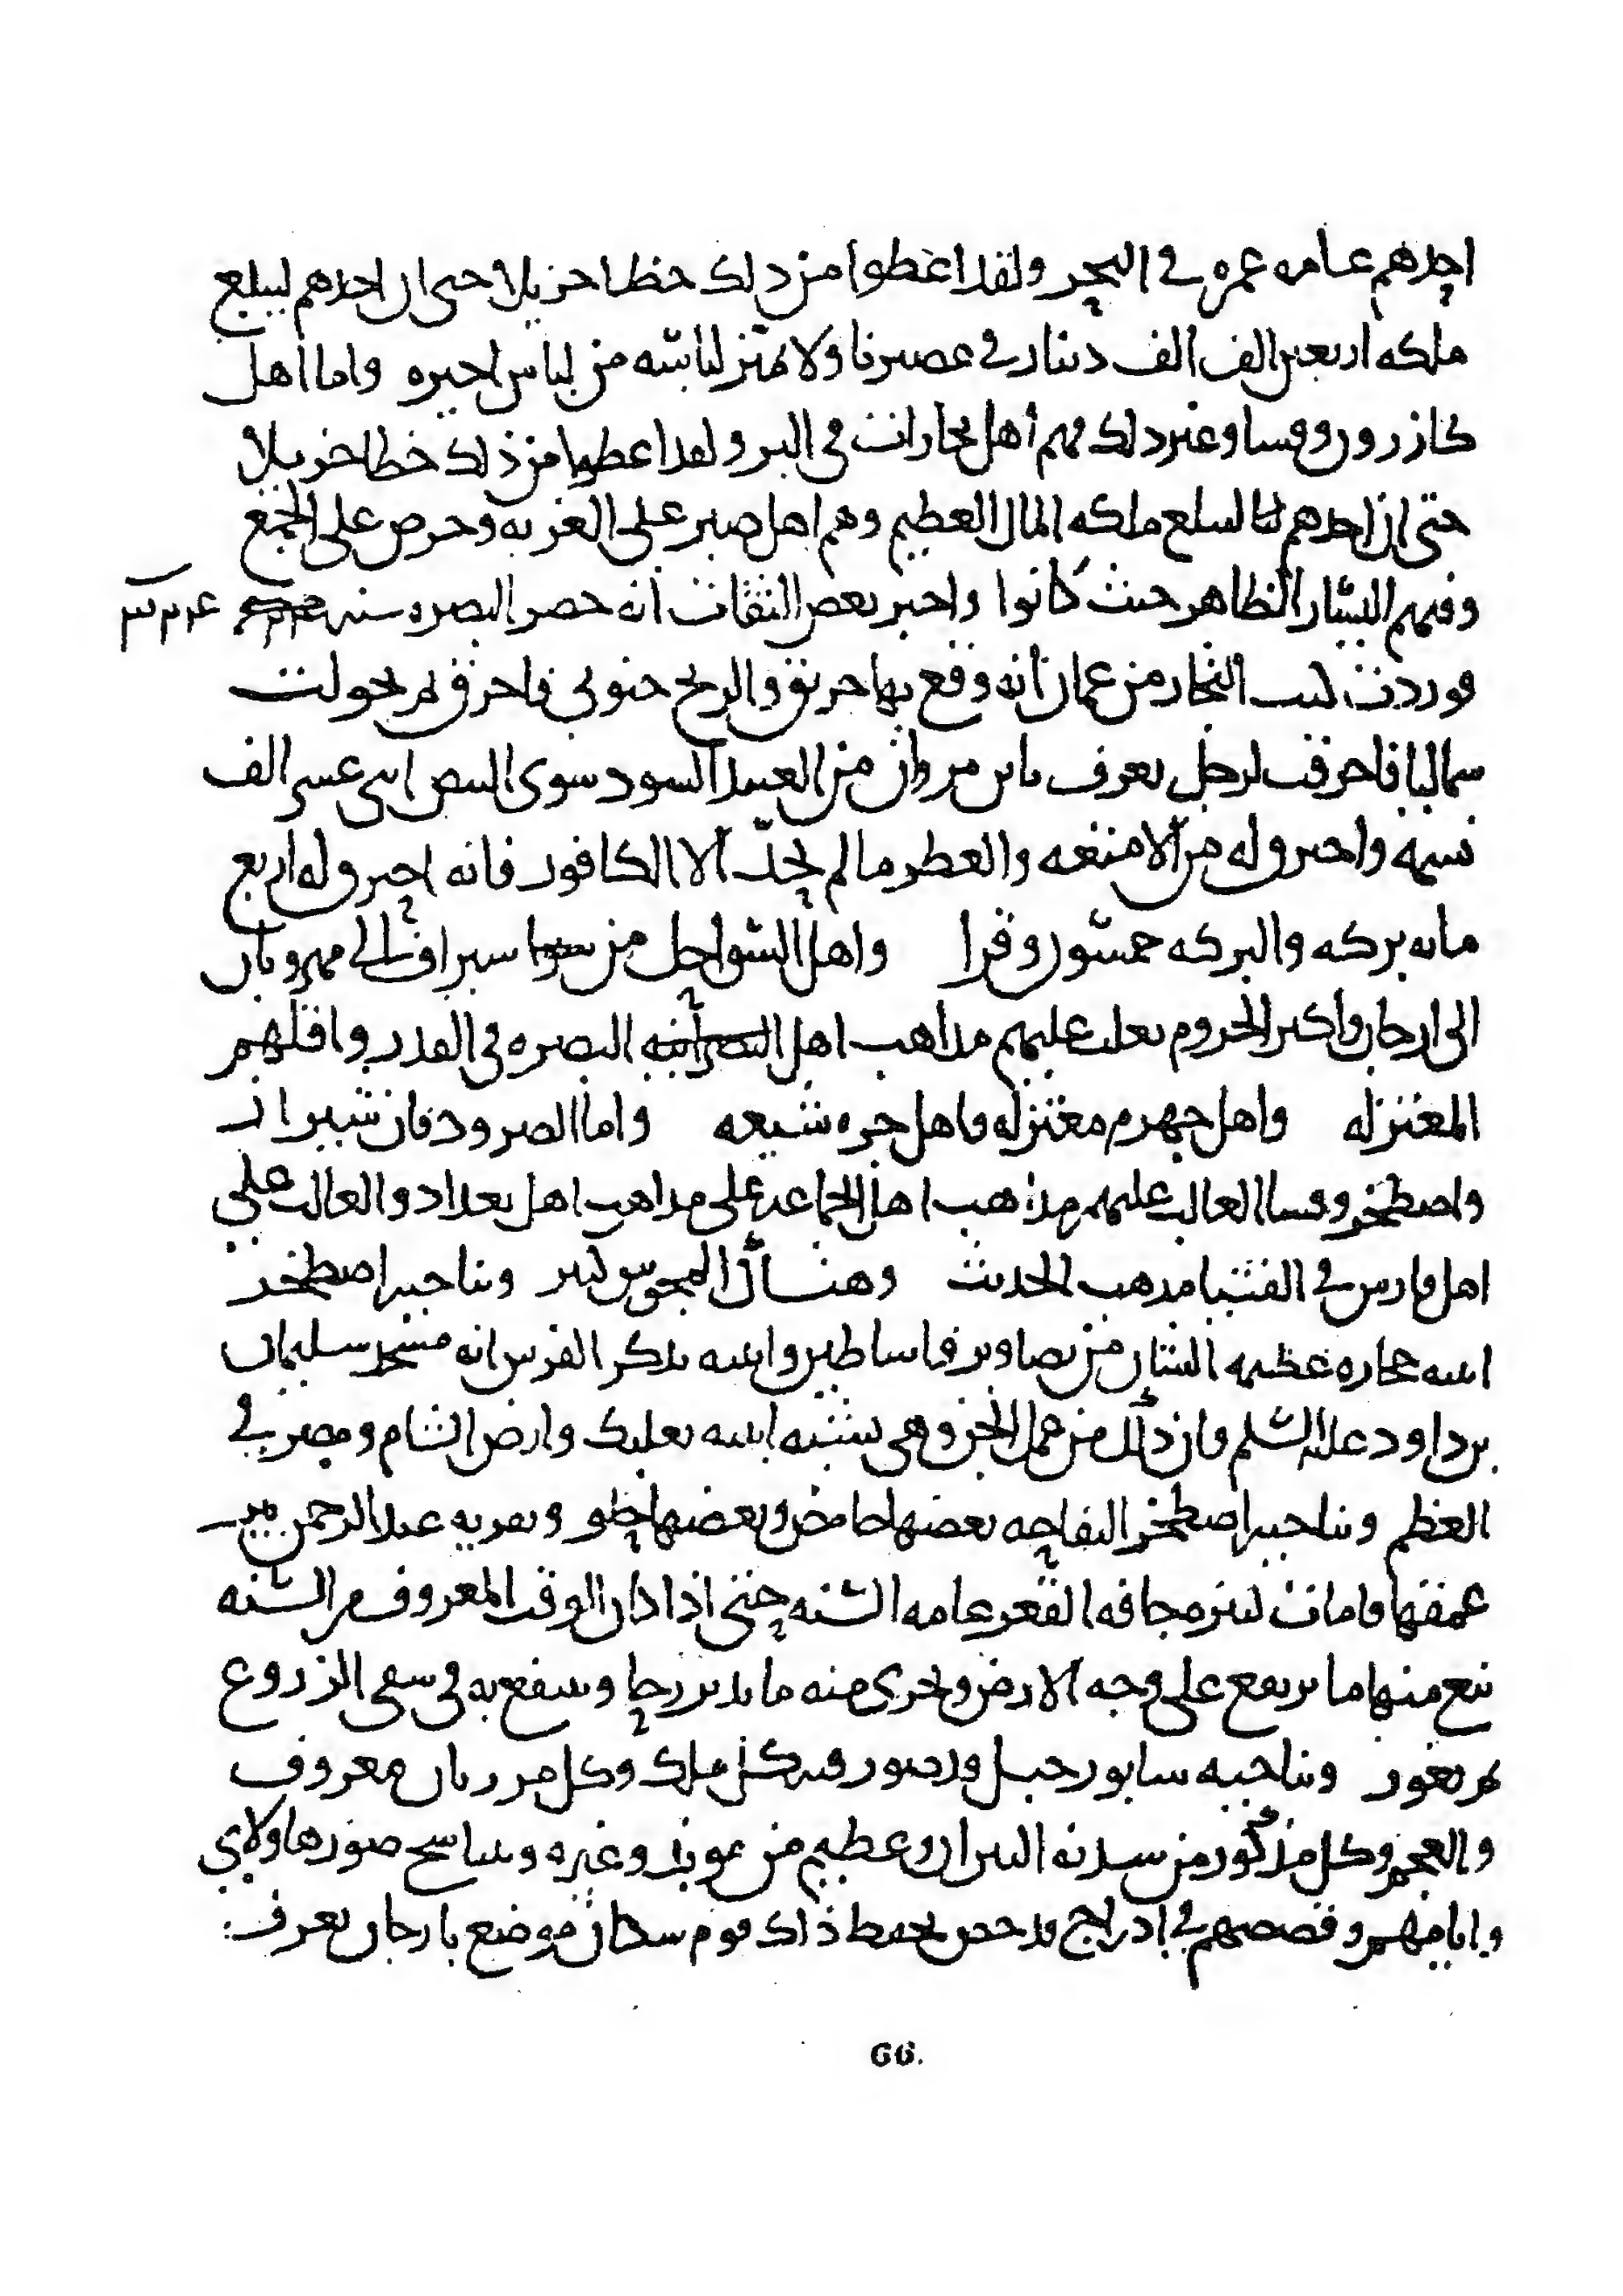 احدهم عامه عمره في البحر ولقد اعطوا من ذلك حظا جزيلا حتى ان احدهم ليبلغ
ملكه اربعين الف الف دينار في عصرنا ولا تميز لباسه من لباس اجيره واما اهل
كازرون وفسا وغير ذلك فهم أهل تجارات في البر ولقد اعطوا من ذلك حظا جزيلا
حتى ان احدهم لسلع ملكه المال العظيم وهم اهل صبر على الغربه وحرص على الجمع
وفيهم اليسار الظاهر حيث كانوا واخبر بعض الثقات أنه حضر البصره سنه
فوردت كتب التجار من عمان أنه وقع بها حريق والريح جنوبي فاحرق ثم تحولت
شماليا فاحرقت لرجل يعرف بابن مروان من العبيد السود سوى البيض اثنى عشر الف
نسمه واحترق له من الامتعه والعطر ما لم يحد الا الكافور فانه احترق له اربع
مائه بركه والبركه خمسون وقرا واهل السواحل من سيراف الى مهروبان
الى ارجان واكثر الجروم يغلب عليهم مذاهب اهل البصره في القدر واقلهم
المعتزله واهل جهرم معتزله واهل جره شيعه واما الصرود فان شيراز
واصطخر وفسا الغالب عليهم مذاهب اهل الجماعه على مذاهب اهل بغداد والغالب على
اهل فارس في الفتيا مذهب الحديث وهناك المجوس كثير وبناحيه اصطخر
ابنيه حجاره عظيمه الشان من تصاوير واساطين وابنيه يذكر الفرس انه مسجد سليمان
بن داود عليه السلم وان ذلك من عمل الجن وهي تشبه ابنيه بعلبك وارض الشام ومصر في
العظم وبناحيه اصطخر التفاحه بعضها حامض وبعضها حلو وبقريه عبد الرحمن بير
عمقها قامات كثيره جافه القعر عامه السنه حتى اذا كان الوقت المعروف من السنه
نبع منها ما يرتفع على وجه الارض ويجري منه ما يدير رحا وينتفع به في سقي الزروع
ثم يغور وبناحيه سابور جبل قد صور فيه كل ملك وكل مرزبان معروف
والعجم وكل مذكور من سدنه النيران وعظيم من موبذ وغيره وتناسخ صورها ولاي
وايامهم وقصصهم في ادراج قد خص بحفظ ذلك قوم سكان موضع بارجان يعرف:
66.